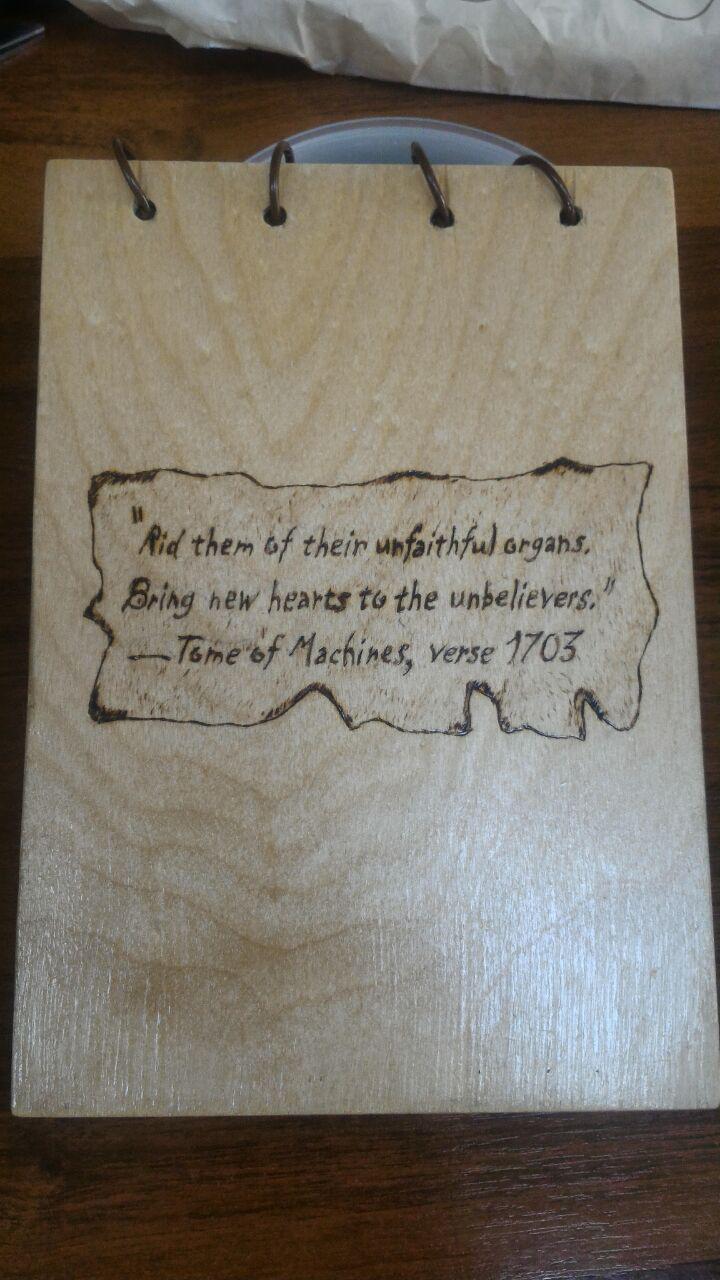 "Rid them of their unfaithful organs.
Bring new hearts to the unbelievers."
—Tome of Machines, verse 1703